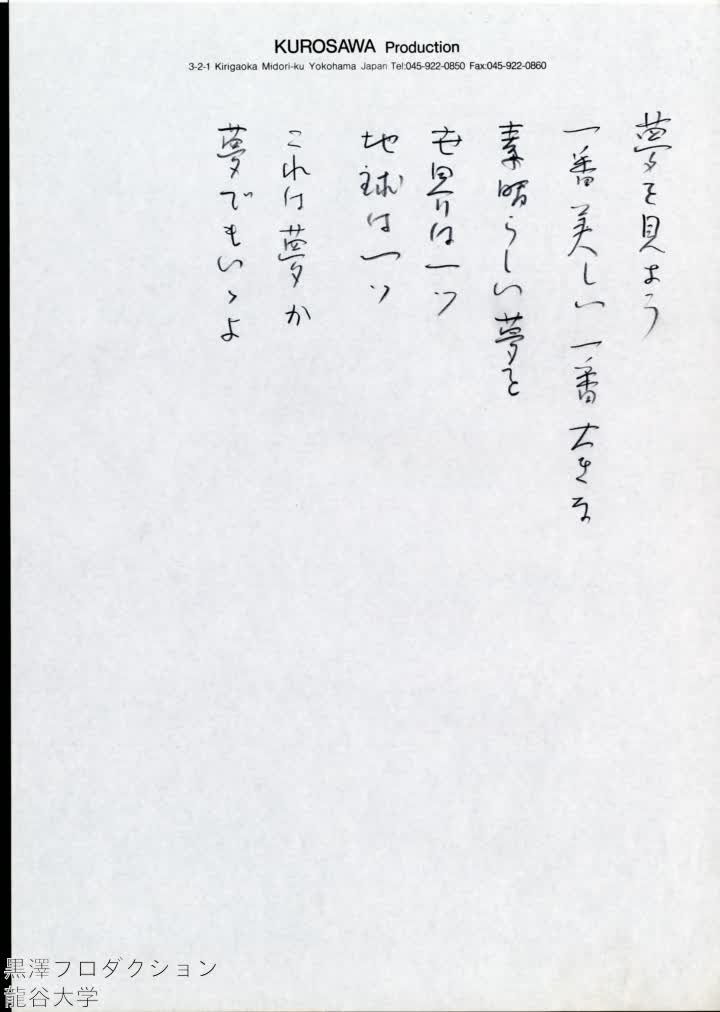 KUROSAWA Production
3-2-1 Kirigaoka Midori-ku Yokohama Japan Tel:045-922-0850 Fax:045-922-0860
夢を見よう
一番美しい一番大きな
素晴らしい夢を
世界は一ツ
地球は一ツ
これは夢か
夢でもいゝよ
黒澤フロダクション
龍谷大学